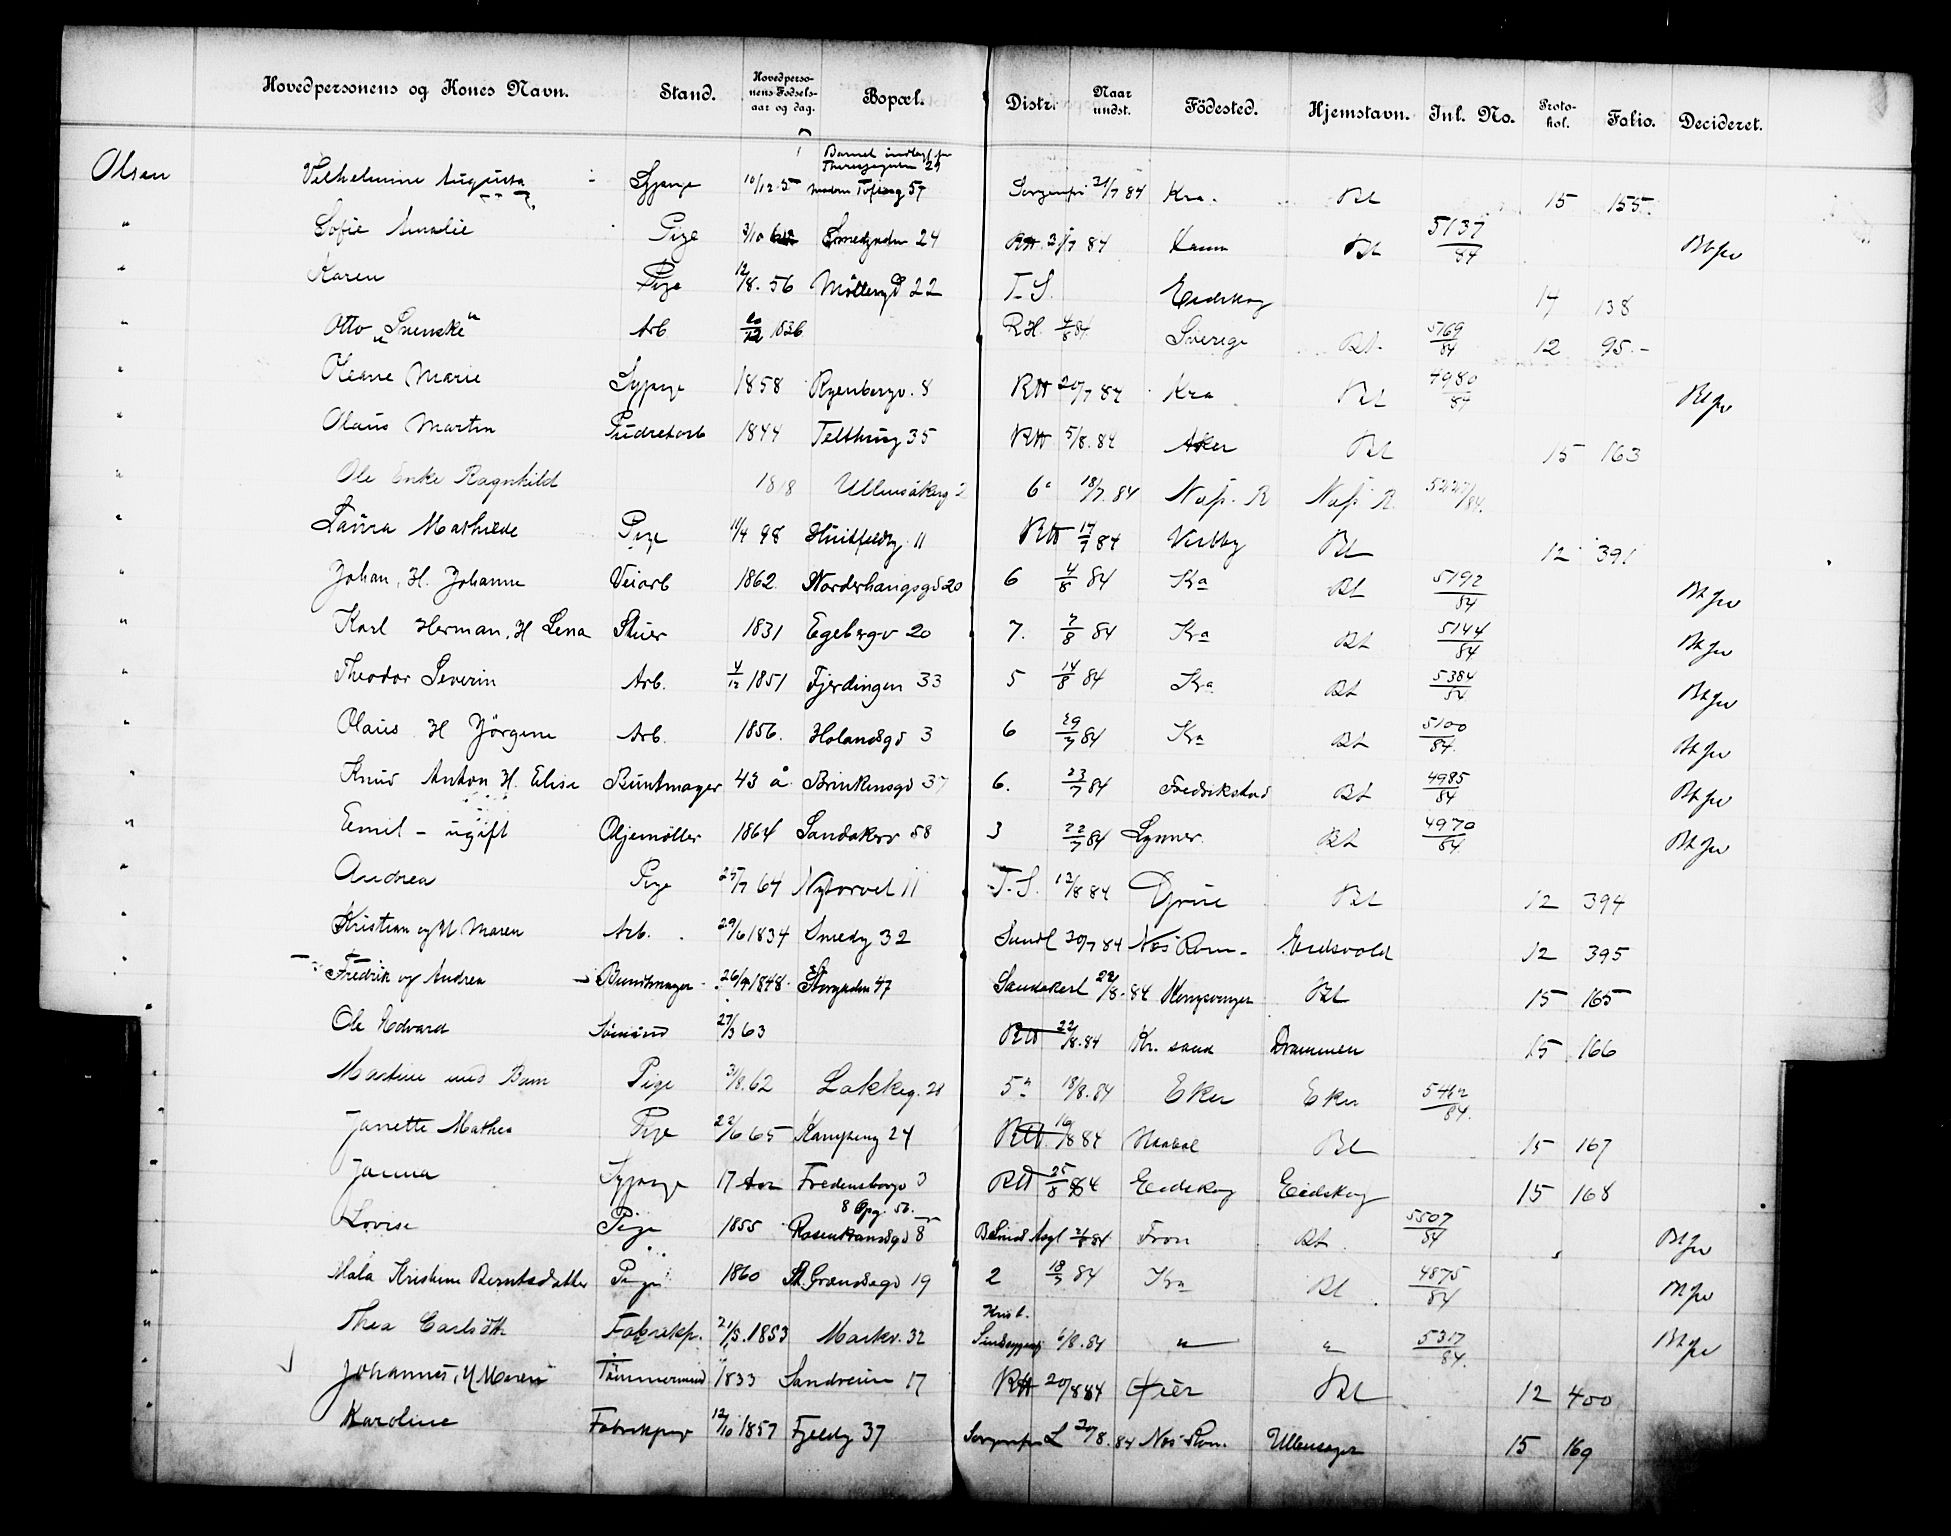 Hovedpersonens og Kones Navn. Stand. Hovedpersonens Fødselsaar og dag. Bopæl. Distr. Naar undst. Födested. Hjemstavn. Inl. No. Protokol. Folio. Decideret.
Olsen Vilhelmine Augusta Sypige 10/12 5 57 21/7 84 Kra. Bt 15 155.
" Sofie Amalie Pige 3/10 Smedgaden 24 RH 21/7 84 Bt 5137/84 Bt fw
" Karen Pige 12/8. 56 Möllergd 22 T. S. Eidskog 14 138
" Otto "Svenske" Arb 1836 R.H. 4/8 84 Sverige Bt. 5169/84 12 95.-
" Oleane Marie Sypige 1858 Ryenbergv. 8 RH 20/7 84 Kra Bt 4980/84 Bt fw
" Olaus Martin Pudretarb 1844 Telthusg 35 RH 5/8. 84 Aker Bt 15 163
" Ole Enke Ragnhild 1818 Ullensakerg 2 6 18/7. 84 Næs. R Næs R. 5227/84.
" Laura Mathilde Pige 10/4 98 Huitfeldtg. 11 RH 17/7 84 Vestby Bt 12 391
" Johan, H. Johanne Veiarb 1862. Norderhaugsgd 20 6 4/8 84 Kra Bt 5192/84 Bt fw
" Karl Herman, H Lena Stuer 1831 Egebergv 20 7. 7/8 84 Kra Bt 5144/84 Bt fw
" Theodor Severin Arb. 4/12 1851 Fjerdingen 33 5 14/8 84 Kra Bt 5384/84 Bt fw
" Olaus H Jörgine Arb. 1856. Holandsgd 3 6 29/7 84 Kra Bt 5100/84. Bt fw
" Knud Anton H. Elise Buntmager 43 å Brinkensgd 37 6. 23/7 84 Fredrikstad Bt 4985/84 Bt fw
" Emil - ugift Oljemöller 1864 Sandakerv 58 3 22/7 84 Bt 4970/84. Bt fw
" Andrea Pige 25/7 64 Nytorvet 11 T. S. 12/8 84 Grue Bt 12 394
" Kristian og H Maren Arb. 29/6 1834 Smedg 32 Sundl 30/7 84 Næs Rom. Eidsvold 12 395
" Fredrik og Andrea Bundtmager 26/9 1848. Storgaden 47 Sandakerl 22/8. 84 Kongsvinger Bt 15 165
" Ole Edvard Sömand 27/3 63 RH 22/8. 84 Kr. sand Drammen 15 166
" Martine med Barn Pige 3/8. 62 Lakkeg. 21 5 18/8. 84 Eker Eker 84.
" Janette Mathea Pige 22/6 65 Kampeng 24 RH 16/8 84 Bt 15 167
" Janna Sypige 17 Aar Fredensborgv 3 RH 25/8 84 Eidskog Eidskog 15 168
" Lovise Pige 1855 8 Opg. 56. Rosenkransdgd 8 84 Fron Bt 5507/84 Bt fw
" Mala Kristine Berntsdatter Pige 1860 St. Grændsegd 19 2 18/7 84 Kra Bt 4875/84 Bt fw
" Thea Carlsdtt Fabrikp. 21/5. 1853 Markv. 32 Krist. Sindssygeasyl 6/8. 84 " " 5317/84. Bt fw
Johannes, H Maren Tömmermand 1833 Sandveien 17 RH 20/8 84 Öier Bt 12 400
" Karoline Fabrikpige 12/10 1857 Fjeldg 37 Sorgenfri L 20/8. 84 Næs Rom. Ullensager 15 169